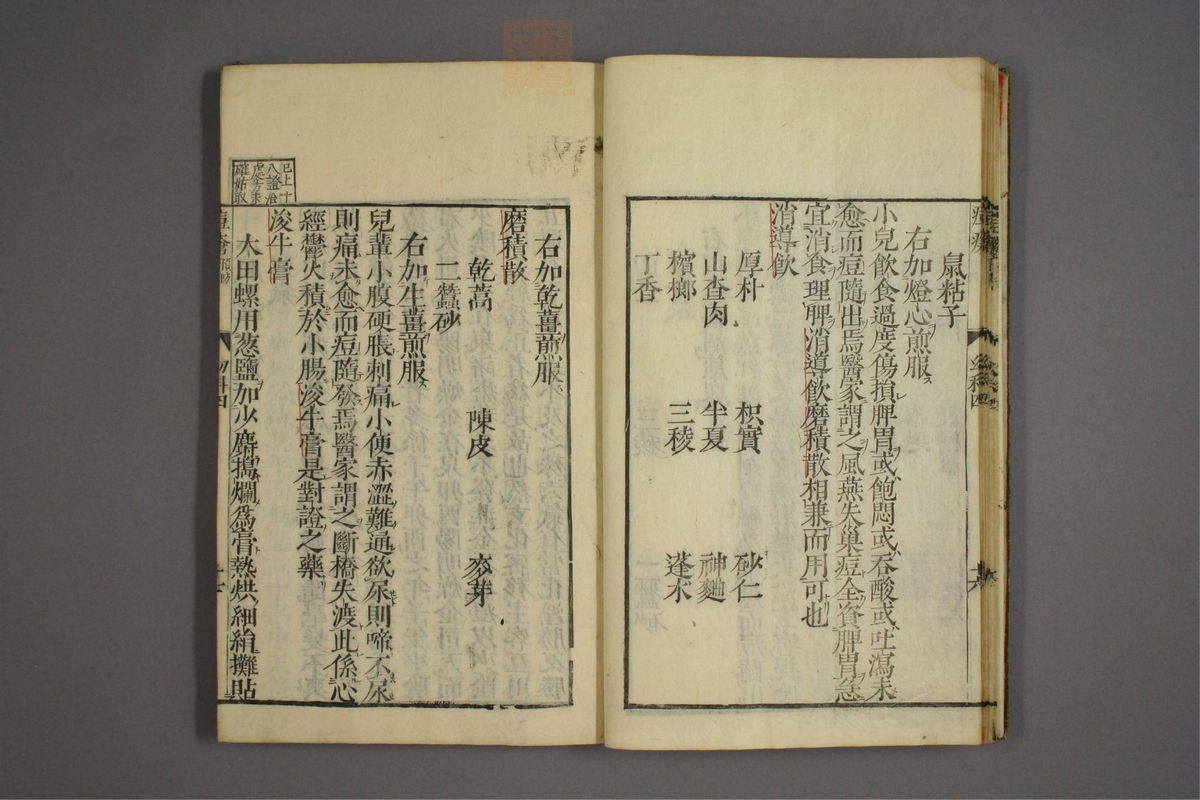 鼠粘子
右加燈心煎服
小兒飲食過度傷損脾胃或飽悶或吞酸或吐瀉未
愈而痘隨出焉醫家謂之風燕失巢痘全資脾胃急
宜消食理脾消導飲磨積散相兼而用可也
消導飲
厚朴 枳實 砂仁
山查肉 半夏 神麯
檳榔 三稜 蓬朮
丁香
右加乾薑煎服
磨積散
乾蒿 陳皮 麥芽
二蠶砂
右加生薑煎服
兒輩小腹硬脹刺痛小便赤澀難通欲尿則啼不尿
則痛未愈而痘隨發焉醫家謂之斷橋失渡此係心
經鬱火積於小腸浚牛膏是對證之藥
已上十
八證治
浚牛膏
大田螺用葱鹽加少麝搗爛為膏熱烘細絹攤貼
幼科四